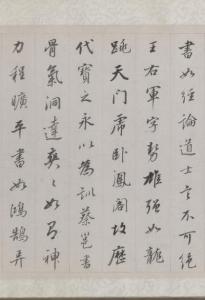 書如經論道士言不可絕
王右軍字勢雄強如龍
跳天門虎臥鳳閣故歷
代寶之永以為訓蔡邕書
骨氣洞達爽〻如有神
力程曠平書如鴻鵠弄